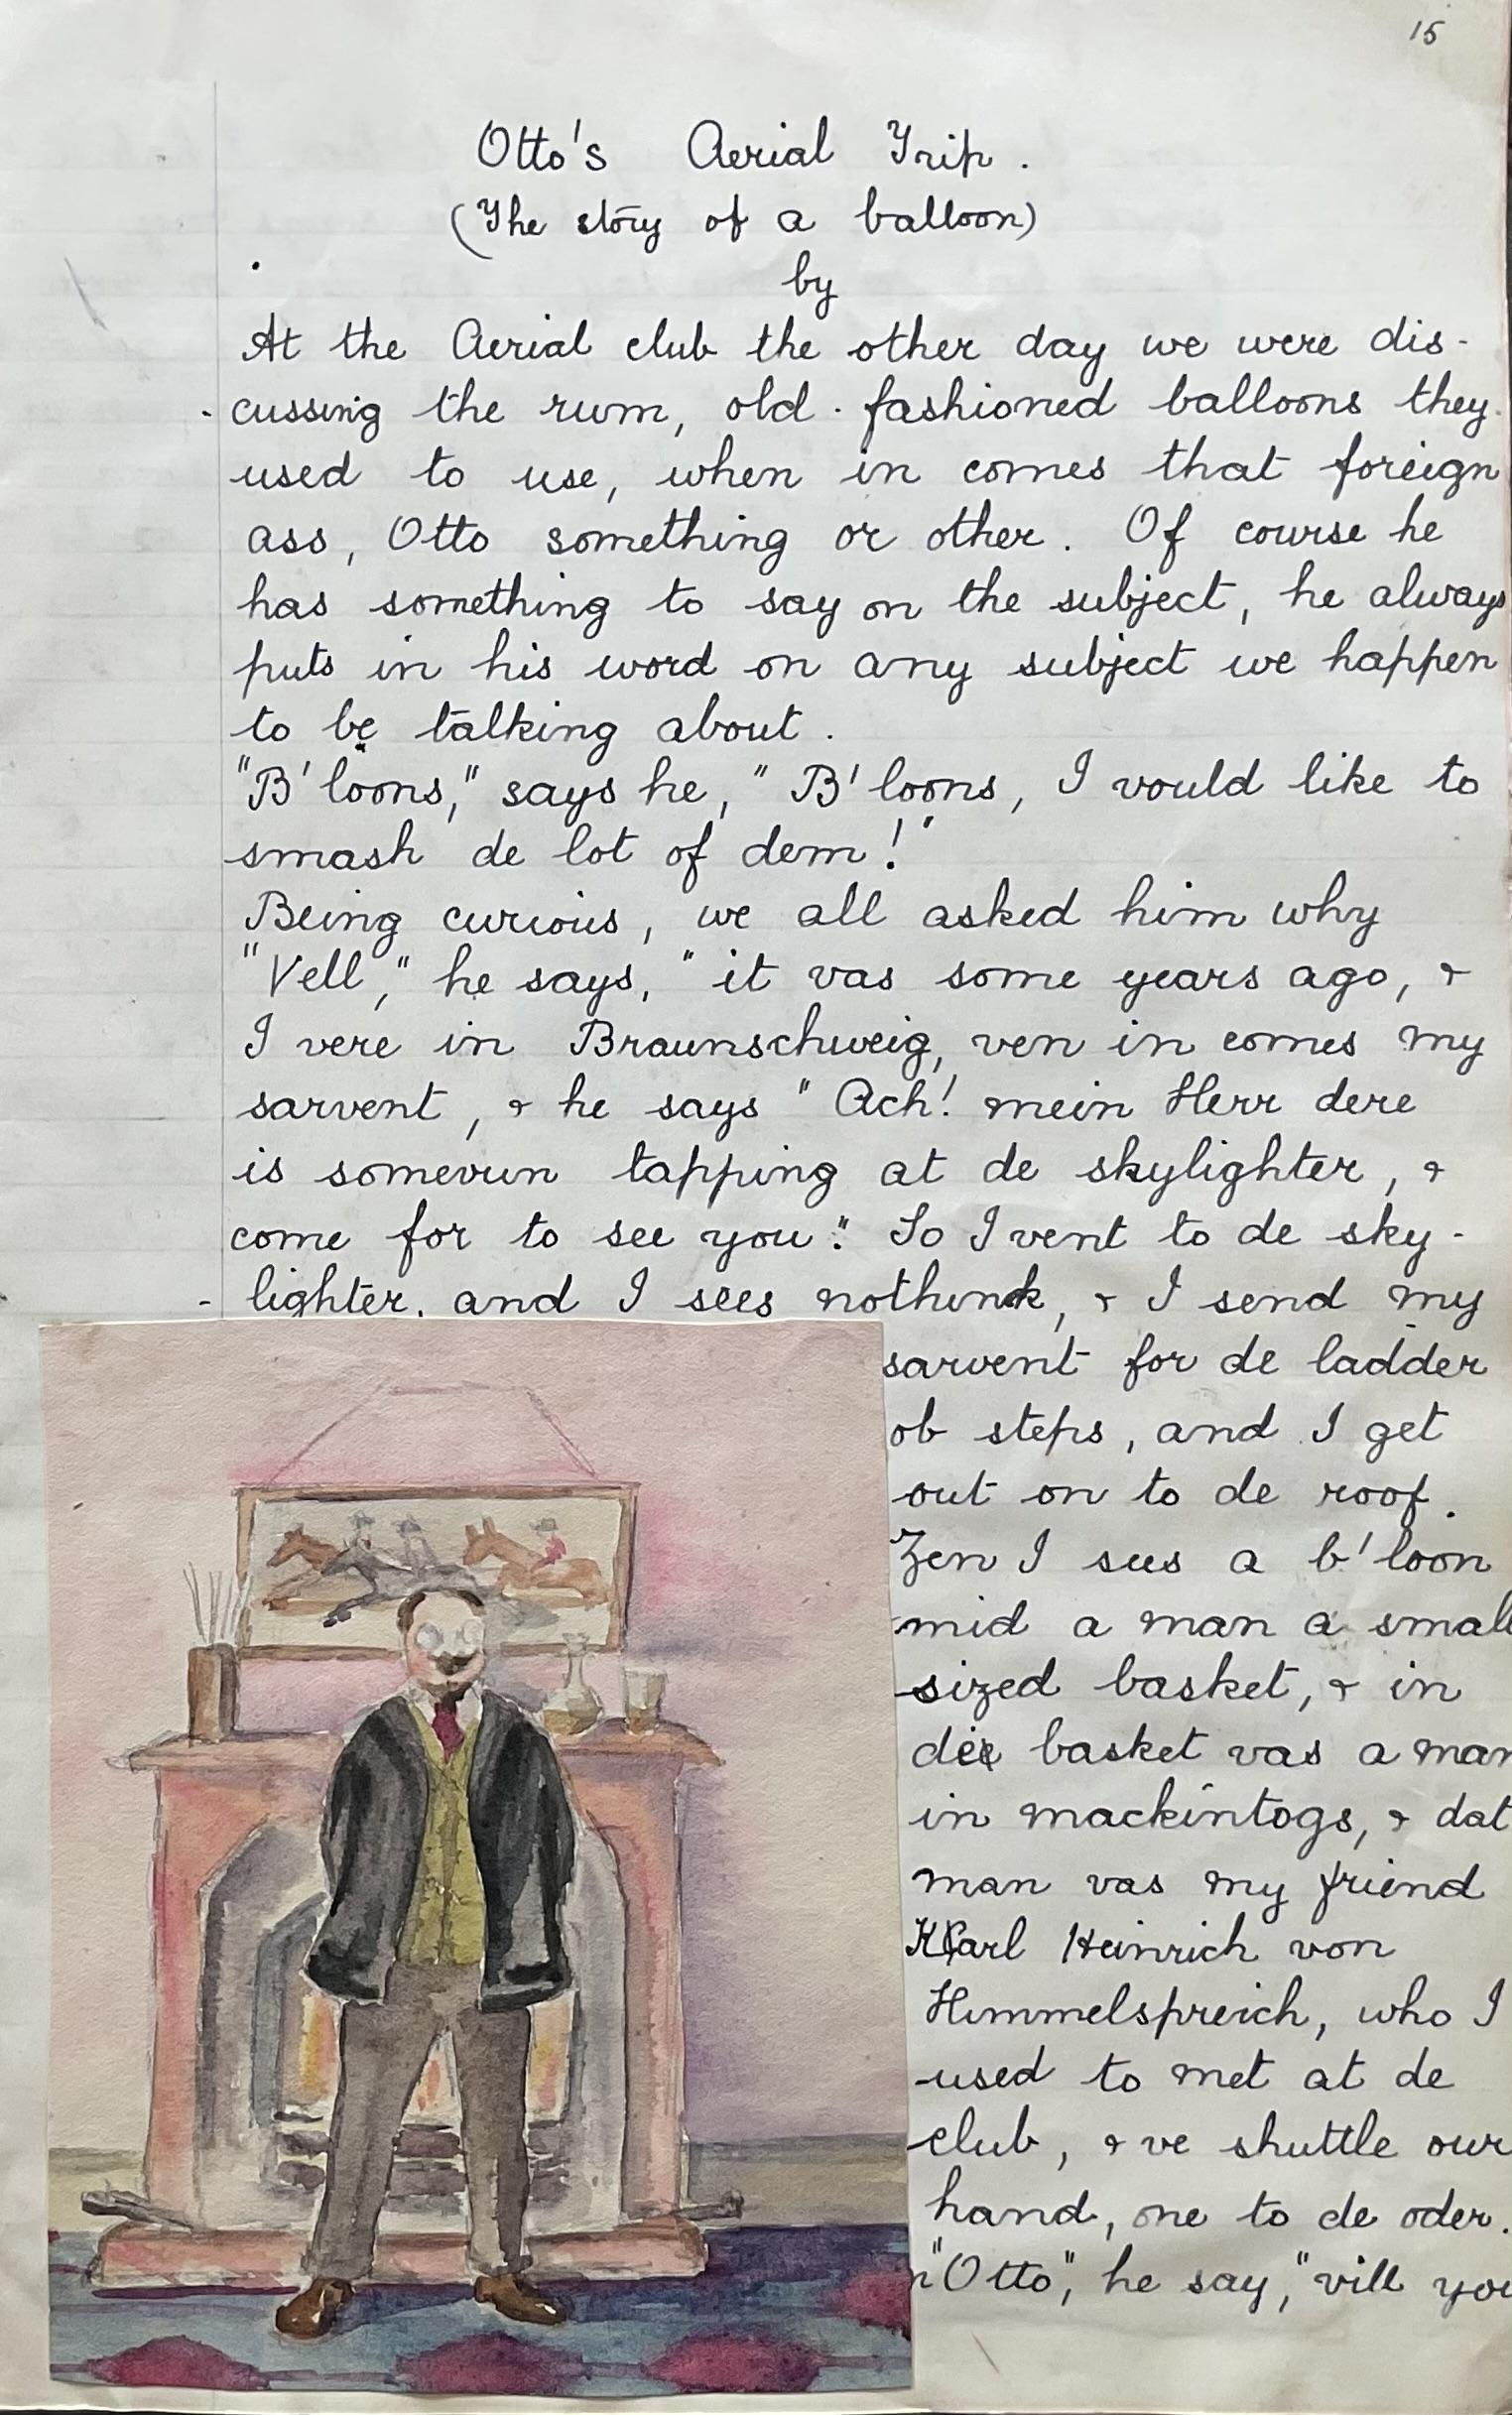 15
Otto's Aerial Trip.
(The story of a balloon)
by
At the Aerial club the other day we were dis-
cussing the rum, old-fashioned balloons they
used to use, when in comes that foreign
ass, Otto something or other. Of course he
has something to say on the subject, he always
puts in his word on any subject we happen
to be talking about.
"B'loons," says he, "B'loons, I vould like to
smash de lot of dem!"
Being curious, we all asked him why
"Vell," he says, "it vas some years ago, &
I vere in Braunschweig, ven in comes my
sarvent, & he says "Ach! mein Herr dere
is somevun tapping at de skylighter, &
come for to see you." So I vent to de sky-
lighter. and I sees nothink, & I send my
sarvent for de ladder
ob steps, and I get
out on to de roof.
Zen I sees a b'loon
mid a man a small
sized basket, & in
die basket vas a man
in mackintogs, & dat
man vas my friend
Karl Heinrich von
Himmelspreich, who I
used to met at de
club, & ve shuttle our
hand, one to de oder.
"Otto", he say, "vill you